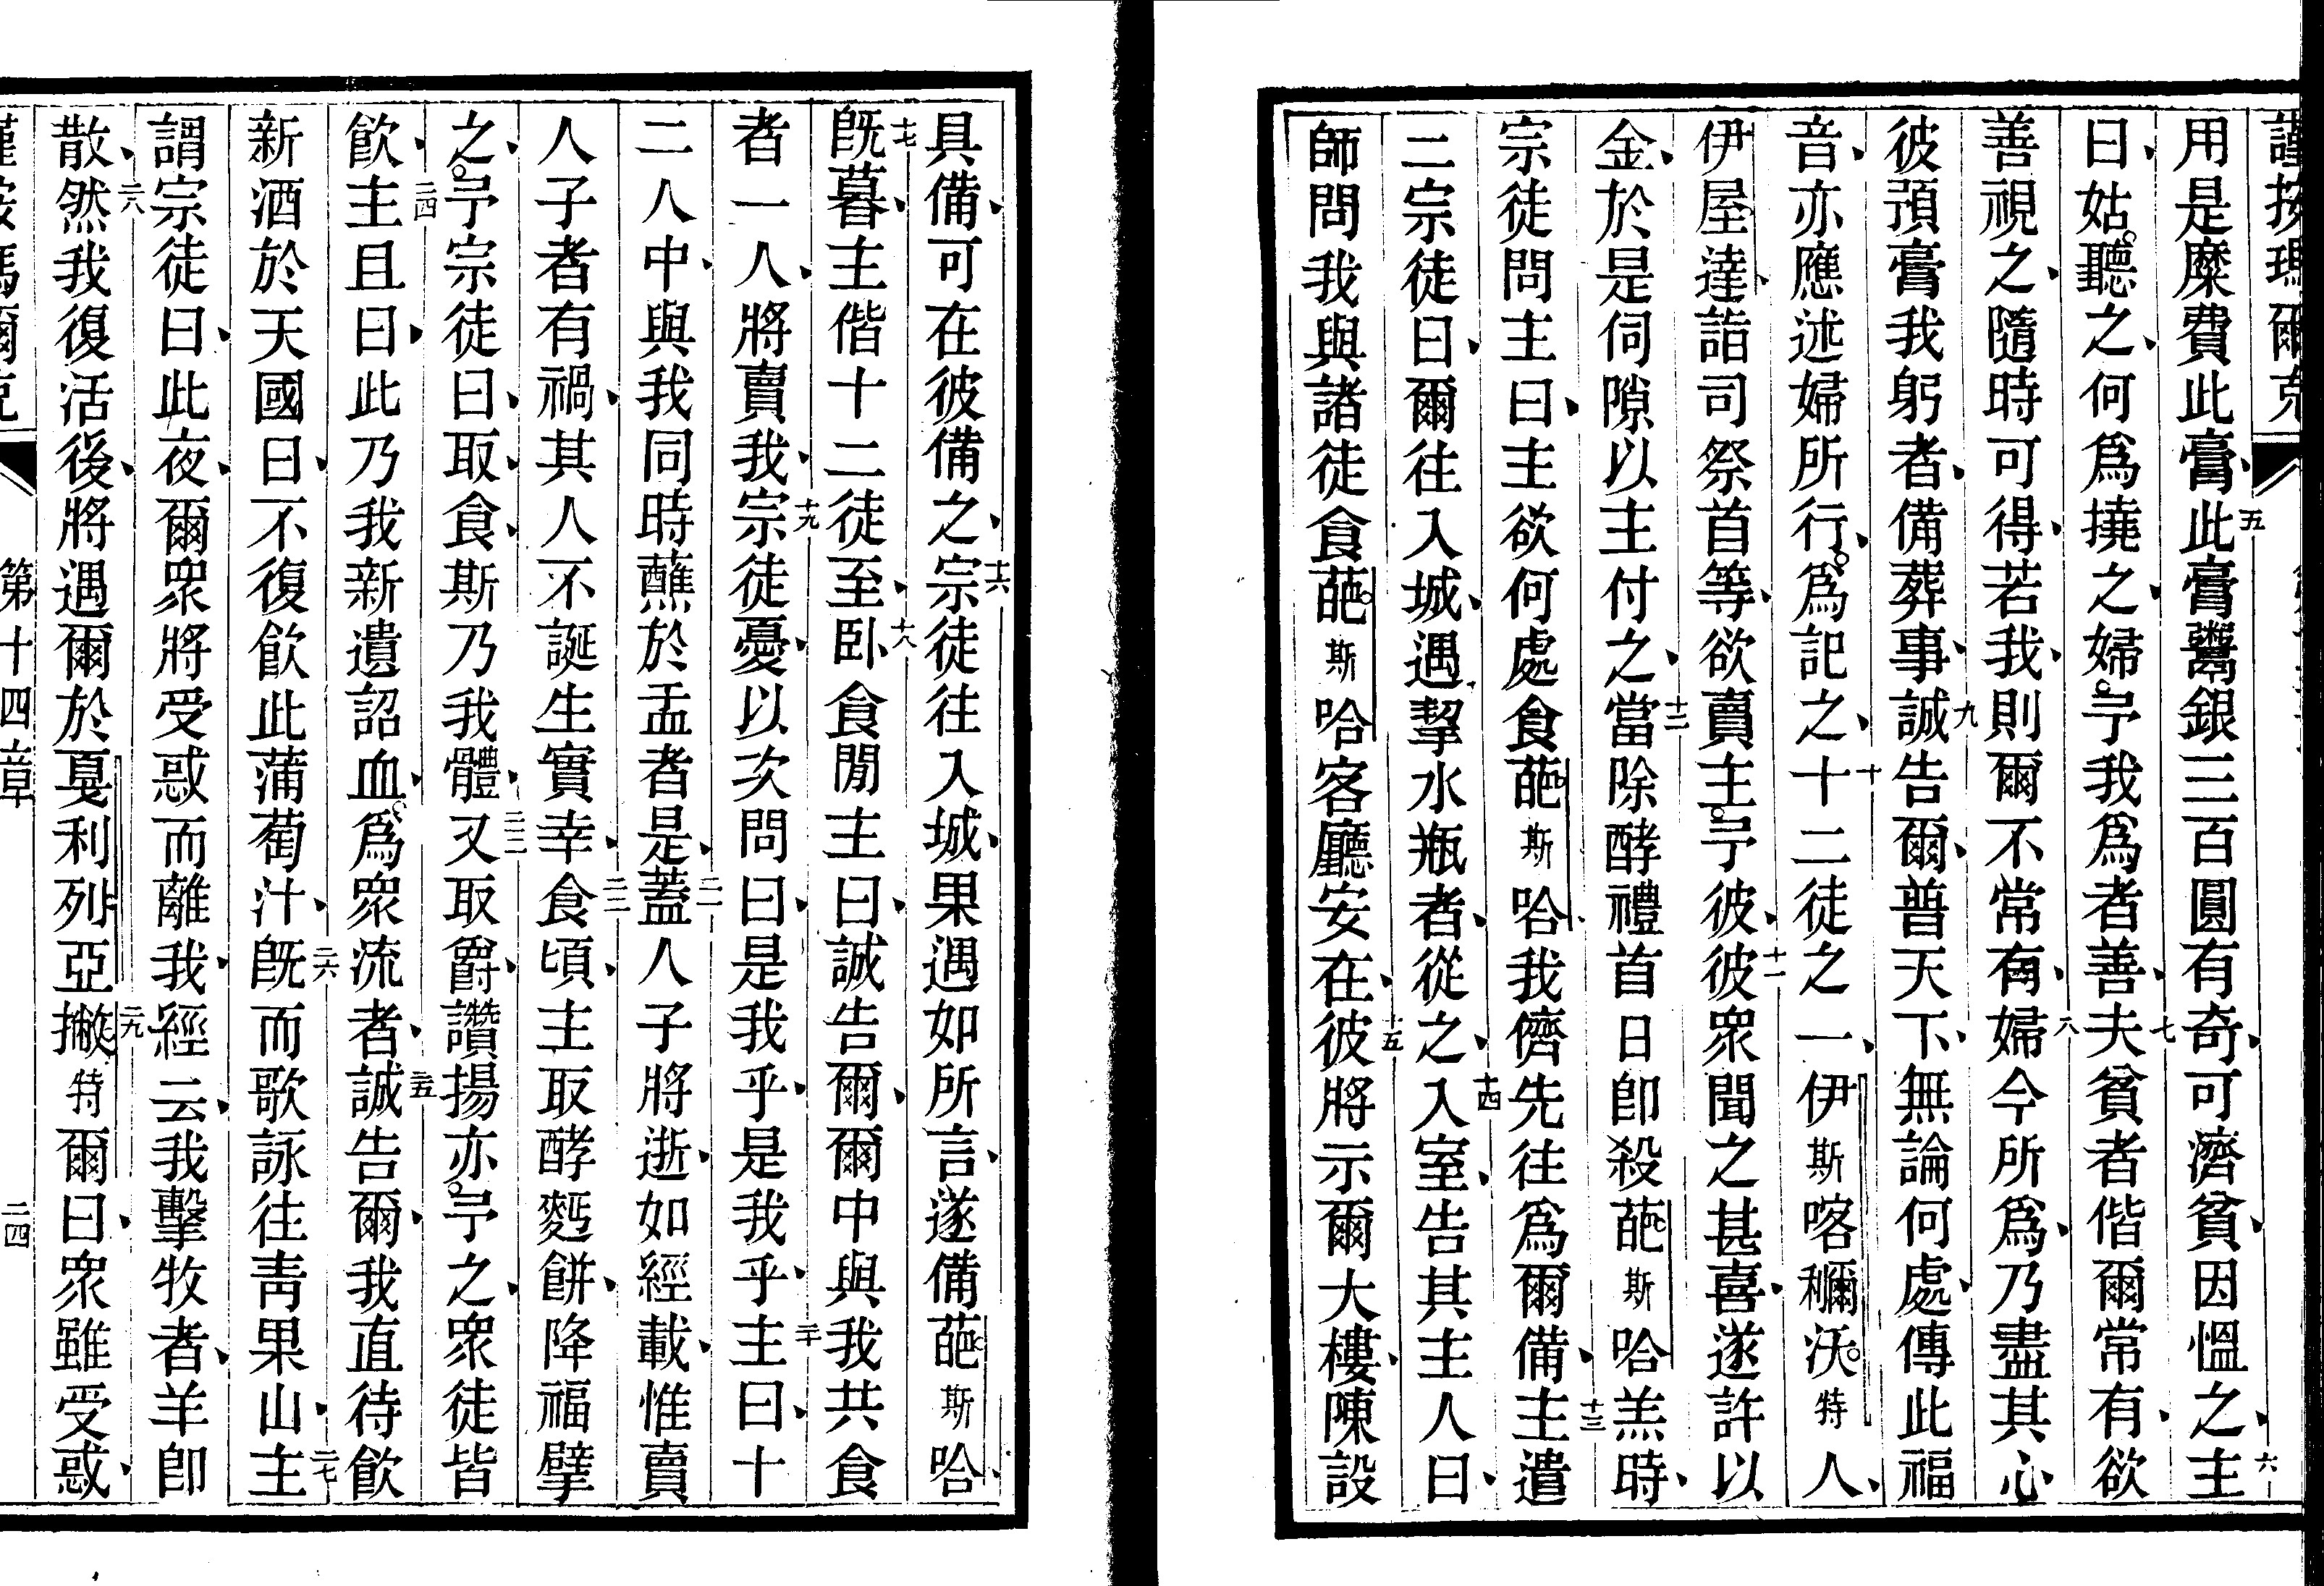 謹按瑪爾克
用是糜費此膏五此膏鬻銀三百圓有奇可濟貧因慍之主六
曰姑聽之何為撓之婦予我為者善夫七貧者偕爾常有欲
善視之隨時可得若我則爾不常有八婦今所為乃盡其心
彼預膏我躬者備葬事九誠告爾普天下無論何處傳此福
音亦應述婦所行為記之十十二徒之一伊斯喀穪沃特人
伊屋達詣司祭首等欲賣主予彼十一彼眾聞之甚喜遂許以
金於是伺隙以主付之十二當除酵禮首日即殺葩斯哈羔時
宗徒問主曰主欲何處食葩斯哈我儕先往為爾備十三主遣
二宗徒曰爾往入城遇挈水瓶者從之十四入室告其主人曰
師問我與諸徒食葩斯哈客廳安在十五彼將示爾大樓陳設
具備可在彼備之十六宗徒往入城果遇如所言遂備葩斯哈
十七既暮主偕十二徒至十八臥食閒主曰誠告爾爾中與我共食
者一人將賣我十九宗徒憂以次問曰是我乎是我乎二十主曰十
二人中與我同時蘸於盂者是二一蓋人子將逝如經載惟賣
人子者有禍其人不誕生實幸二二食頃主取酵麪餅降福擘
之予宗徒曰取食斯乃我體二三又取爵讚揚亦予之眾徒皆
飲二四主且曰此乃我新遺詔血為眾流者二五誠告爾我直待飲
新酒於天國日不復飲此蒲萄汁二六既而歌詠往青果山二七主
謂宗徒曰此夜爾眾將受惑而離我經云我擊牧者羊即
散二八然我復活後將遇爾於戛利列亞二九撇特爾曰眾雖受惑
謹按瑪爾克 第十四章 二四